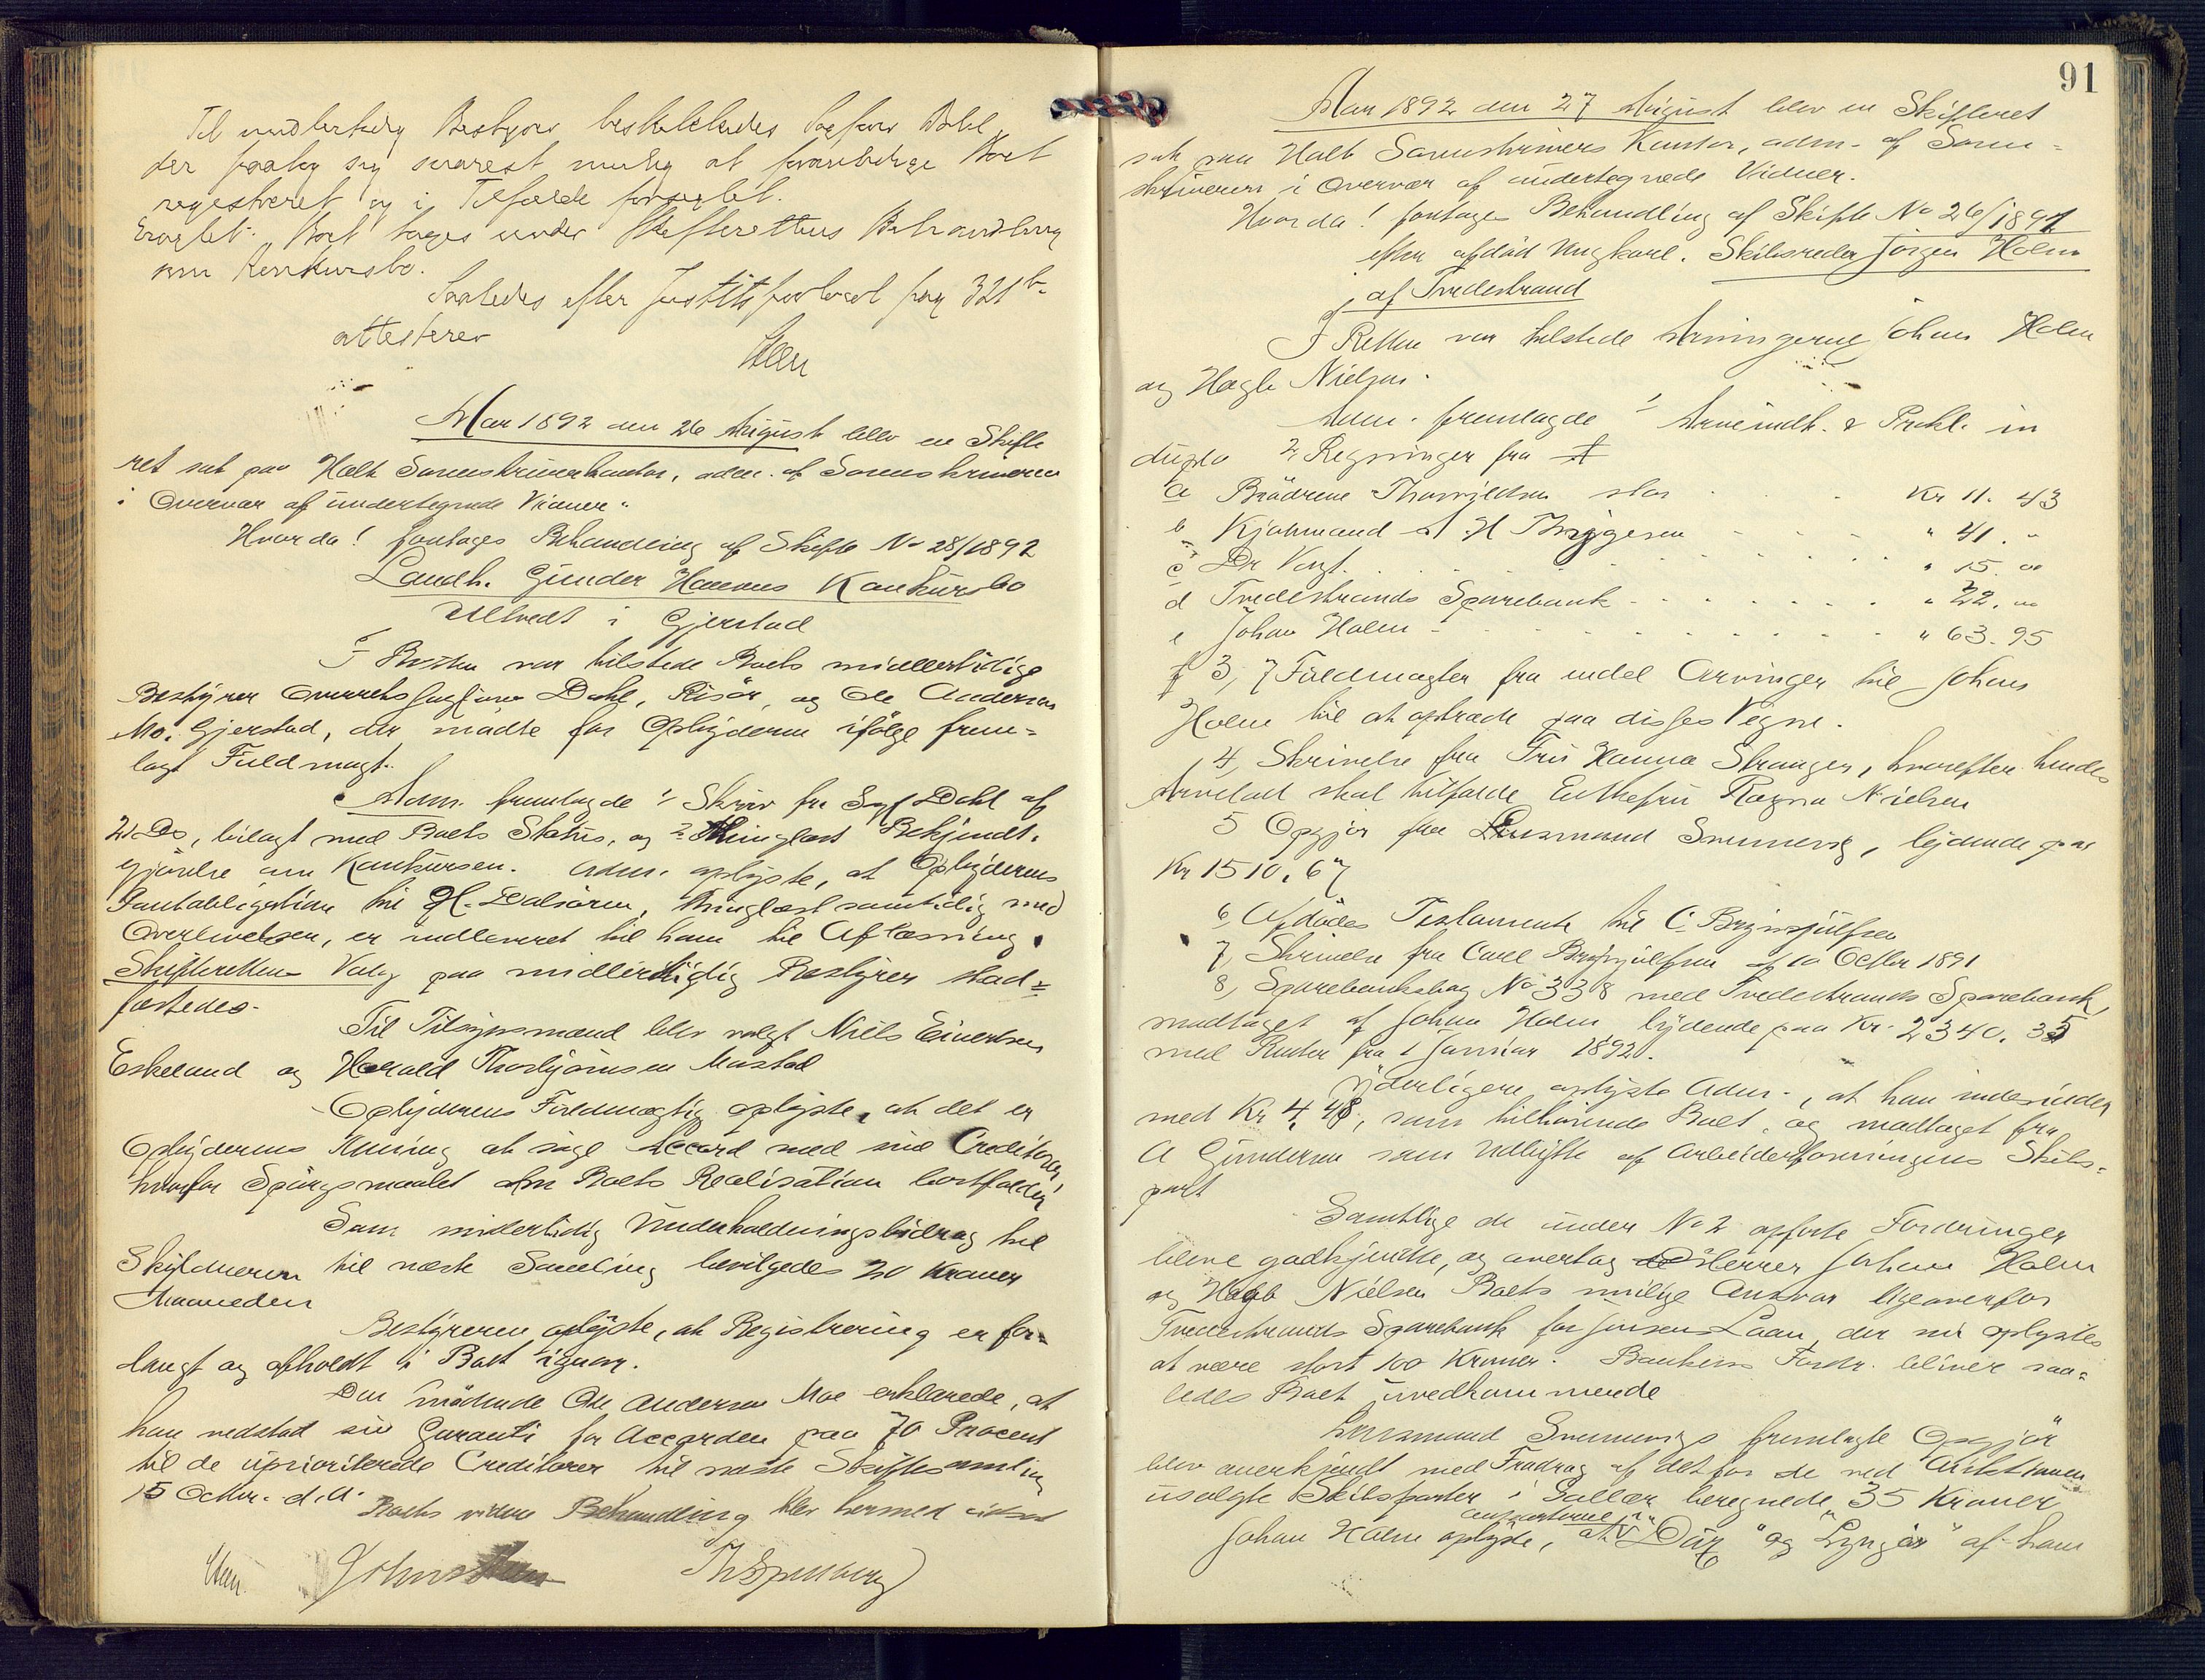 Til midlertidig Bestyrer beskikkedes Sagfører Dahl,
der paatog sig snarest mulig at foranledige Boet
registreret og i Tilfælde forseglet.
Eragtet: Boet tages under Skifterettens Behandling
som Konkursbo.
Saaledes efter Justitsprotocol pag 321 b.
attesterer
Aar 1892 den 26 August blev en Skifte
ret sat paa Holt Sorenskriverkontor, adm. af Sorenskriveren
i Overvær af undertegnede Vidner.
Hvorda! foretoges Behandling af Skifte No 28/1892
Landh. Gunder Hansens Konkursbo
Ulltvedt i Gjerstad
I Retten var tilstede Boets midlertidige
Bestyrer Overretssagfører Dahl, Risör, og Ole Andersen
Mo. Gjerstad, der mödte for Opbyderen ifölge frem-
lagt Fuldmagt.
Adm. fremlagde 1 Skriv fra Sagf Dahl af
24 Ds, bilagt med Boets Status, og 2 Thinglæst Bekjendt-
gjörelse om Konkursen. Adm. oplyste, at Opbyderens
Pantobligation til H. Dalsören, thinglæst samtidig med
Overleverelsen, er indleveret til ham til Aflæsning.
Skifterettens Valg paa midlertidig Bestyrer stad-
fæstedes.
Til Tilsynsmænd blev valgt Niels Einertsen
Eskeland og Harald Thorbjörnsen Mostad
Opbyderens Fuldmægtig oplyste, at det er
Opbyderens Mening at søge Accord med sine Creditorer,
hvorfor Spörgsmaalet om Boets Realisation bortfalder
Som midlertidig Underholdningsbidrag til
Skyldneren til næste Samling bevilgedes 20 Kroner
Maaneden
Bestyreren oplyste, at Registrering er for-
langt og afholdt i Boet igaar.
Den mödende Ole Andersen Moe erklærede, at
han vedstod sin Garanti for Accorden paa 70 Procent
til de uprioriterede Creditorer til næste Skiftesamling
15 Octbr. d. A.
Boets videre Behandling blev hermed udsat
91
Aar 1892 den 27 August blev en Skifteret
sat paa Holt Sorenskrivers Kontor, adm. af Soren-
skriveren i Overvær af undertegnede Vidner.
Hvorda! foretoges Behandling af Skifte No 26/1891
efter afdöd Ungkarl. Skibsreder Jörgen Holm
af Tvedestrand
I Retten var tilstede Arvingerne Johan Holm
og Hagb Nielsen.
Adm. fremlagde 1 Arveindk. & Prokl. in
duplo 2, Regninger fra
a Brödrene Thorvildsen stor Kr 11. 43
b Kjøbmand A H Thygesen " 41. "
c Dr Vogt. " 15. oo
d Tvedestrands Sparebank " 22. oo
e Johan Holm " 63. 95
3, 7 Fuldmagter fra endel Arvinger til Johan
Holm til at optræde paa disses Vegne.
4, Skrivelse fra Fru Hanna Stranger, hvorefter hendes
Arvelod skal tilfalde Enkefru Ragna Nielsen
5 Opgjör fra Lensmand Svenneviig, lydende paa
Kr 1510. 67
6, Afdödes Testamente til C. Brynjulfsen
7, Skrivelse fra Carl Brynjulfsen af 10 Octbr 1891
8, Sparebanksbog No 338 med Tvedestrands Sparebank,
modtaget af Johan Holm, lydende paa Kr. 2340. 35
med Renter fra 1 Januar 1892.
Yderligere oplyste Adm., at han indesidder
med Kr 4, 48, som tilhörende Boet, og modtaget fra
A Gundersen som Udbytte af Arbeiderforeningens Skibs-
part
Samtlige de under No 2 opförte Fordringer
bleve godkjendte, og overtog Herrer Johan Holm
og Hagb Nielsen Boets mulige Ansvar ligeoverfor
Tvedestrands Sparebank for Laan, der nu oplystes
at være stort 100 Kroner. Bankens Fordr. bliver saa-
ledes Boet uvedkommende
Lensmand Svenneviigs fremlagte Opgjör
blev anerkjendt med Fradrag af det for de ved Auktionen
usolgte Skibsparter i Sallær beregnede 35 Kroner
Johan Holm oplyste, at Parterne i "Dux" og "Lyngör" af ham